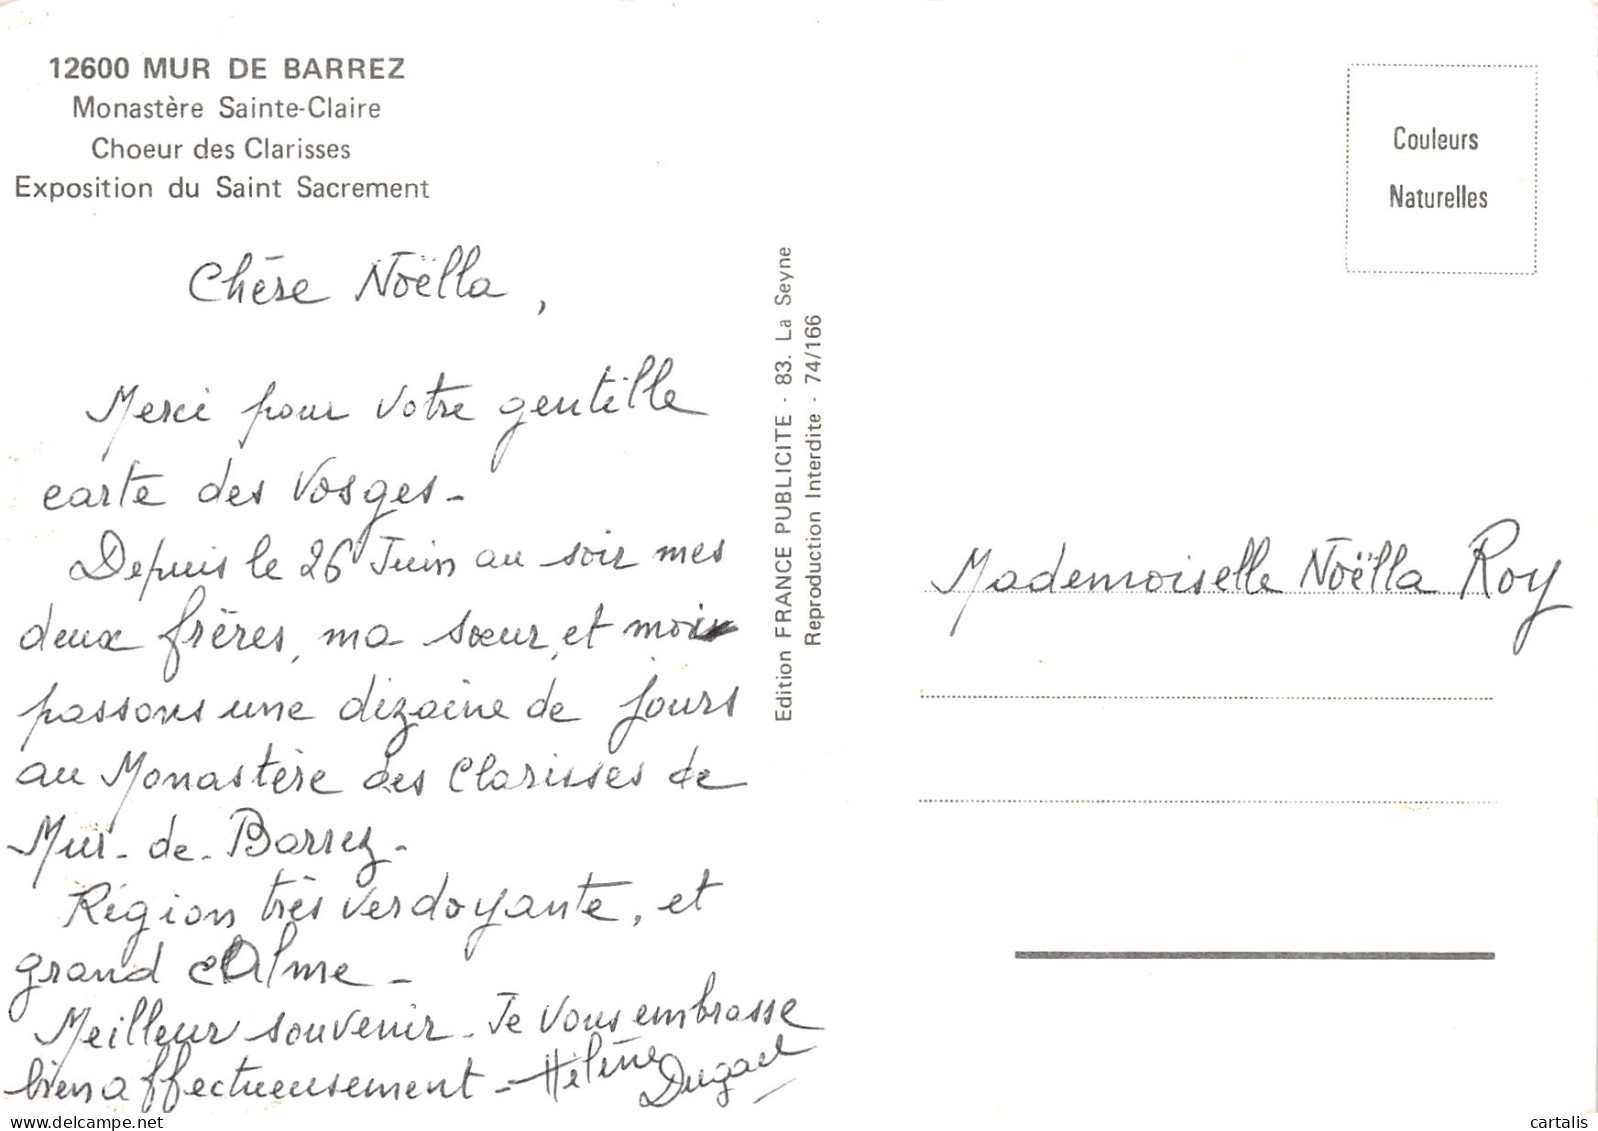 12600 MUR DE BARREZ
Monastère Sainte-Claire
Choeur des Clarisses
Exposition du Saint Sacrement
Chère Noëlla,
Merci pour votre gentille
carte des Vosges -
Depuis le 26 Juin au soir mes
deux frères, ma soeur, et moi
passons une dizaine de jours
au Monastère des Clarisses de
Mur-de-Barrez -
Région très verdoyante, et
grand calme -
Meilleur souvenir - Je vous embrasse
bien affectueusement - Hélène
Edition FRANCE PUBLICITE - 83. La Seyne
Reproduction Interdite - 74/166
Couleurs
Naturelles
Mademoiselle Noëlla Roy
cartalis